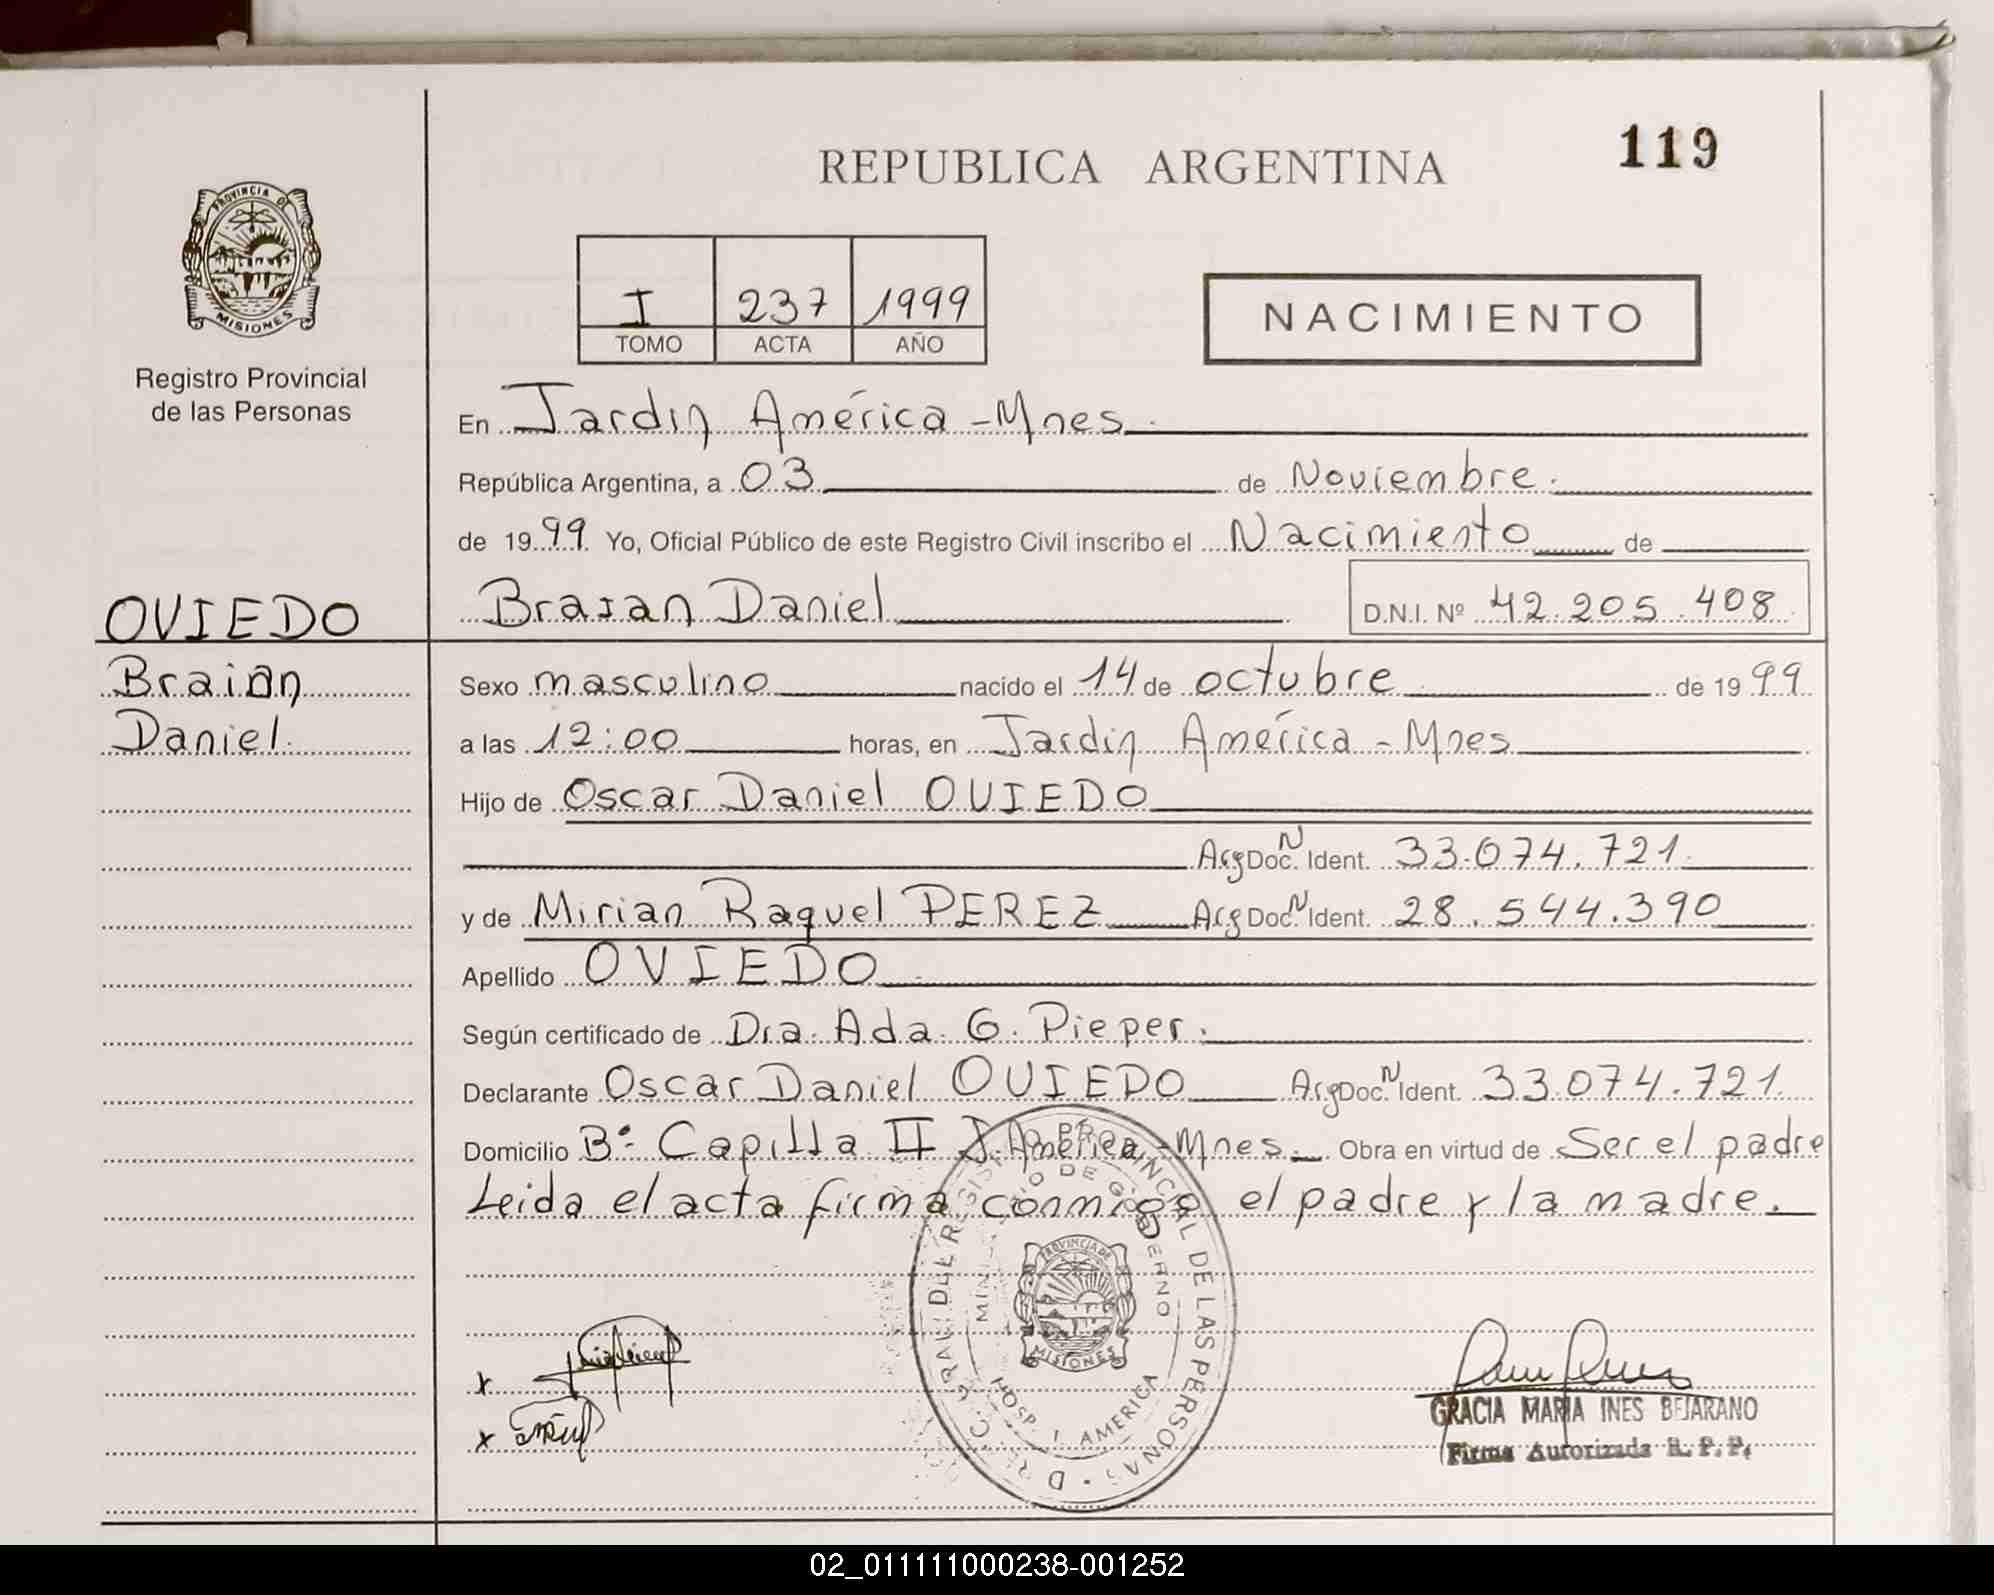 119
REPUBLICA ARGENTINA
PROVINCIA DE
MISIONES
Registro Provincial
de las Personas
I 237 1999
TOMO ACTA AÑO
NACIMIENTO
En Jardin América - Mnes.
República Argentina, a 03 de Noviembre.
de 1999 Yo, Oficial Público de este Registro Civil inscribo el Nacimiento de
OVIEDO
Braian Daniel D.N.I. Nº 42.205.408
Braian
Daniel.
Sexo masculino nacido el 14 de octubre de 1999
a las 12:00 horas, en Jardin América - Mnes
Hijo de Oscar Daniel OVIEDO
Arg Doc. N Ident. 33.074.721.
y de Mirian Raquel PEREZ Arg Doc. N Ident. 28.544.390
Apellido OVIEDO
Según certificado de Dra. Ada G. Pieper.
Declarante Oscar Daniel OVIEDO Arg Doc. N Ident. 33.074.721.
Domicilio Bº Capilla II J. América - Mnes. Obra en virtud de Ser el padre
Leida el acta firma conmigo el padre y la madre.
REGISTRO PROVINCIAL DE LAS PERSONAS
MINISTERIO DE GOBIERNO
PROVINCIA DE
MISIONES
HOSP. J. AMERICA
x
x
GRACIA MARIA INES BEJARANO
Firma Autorizada R. P. P.
02_011111000238-001252